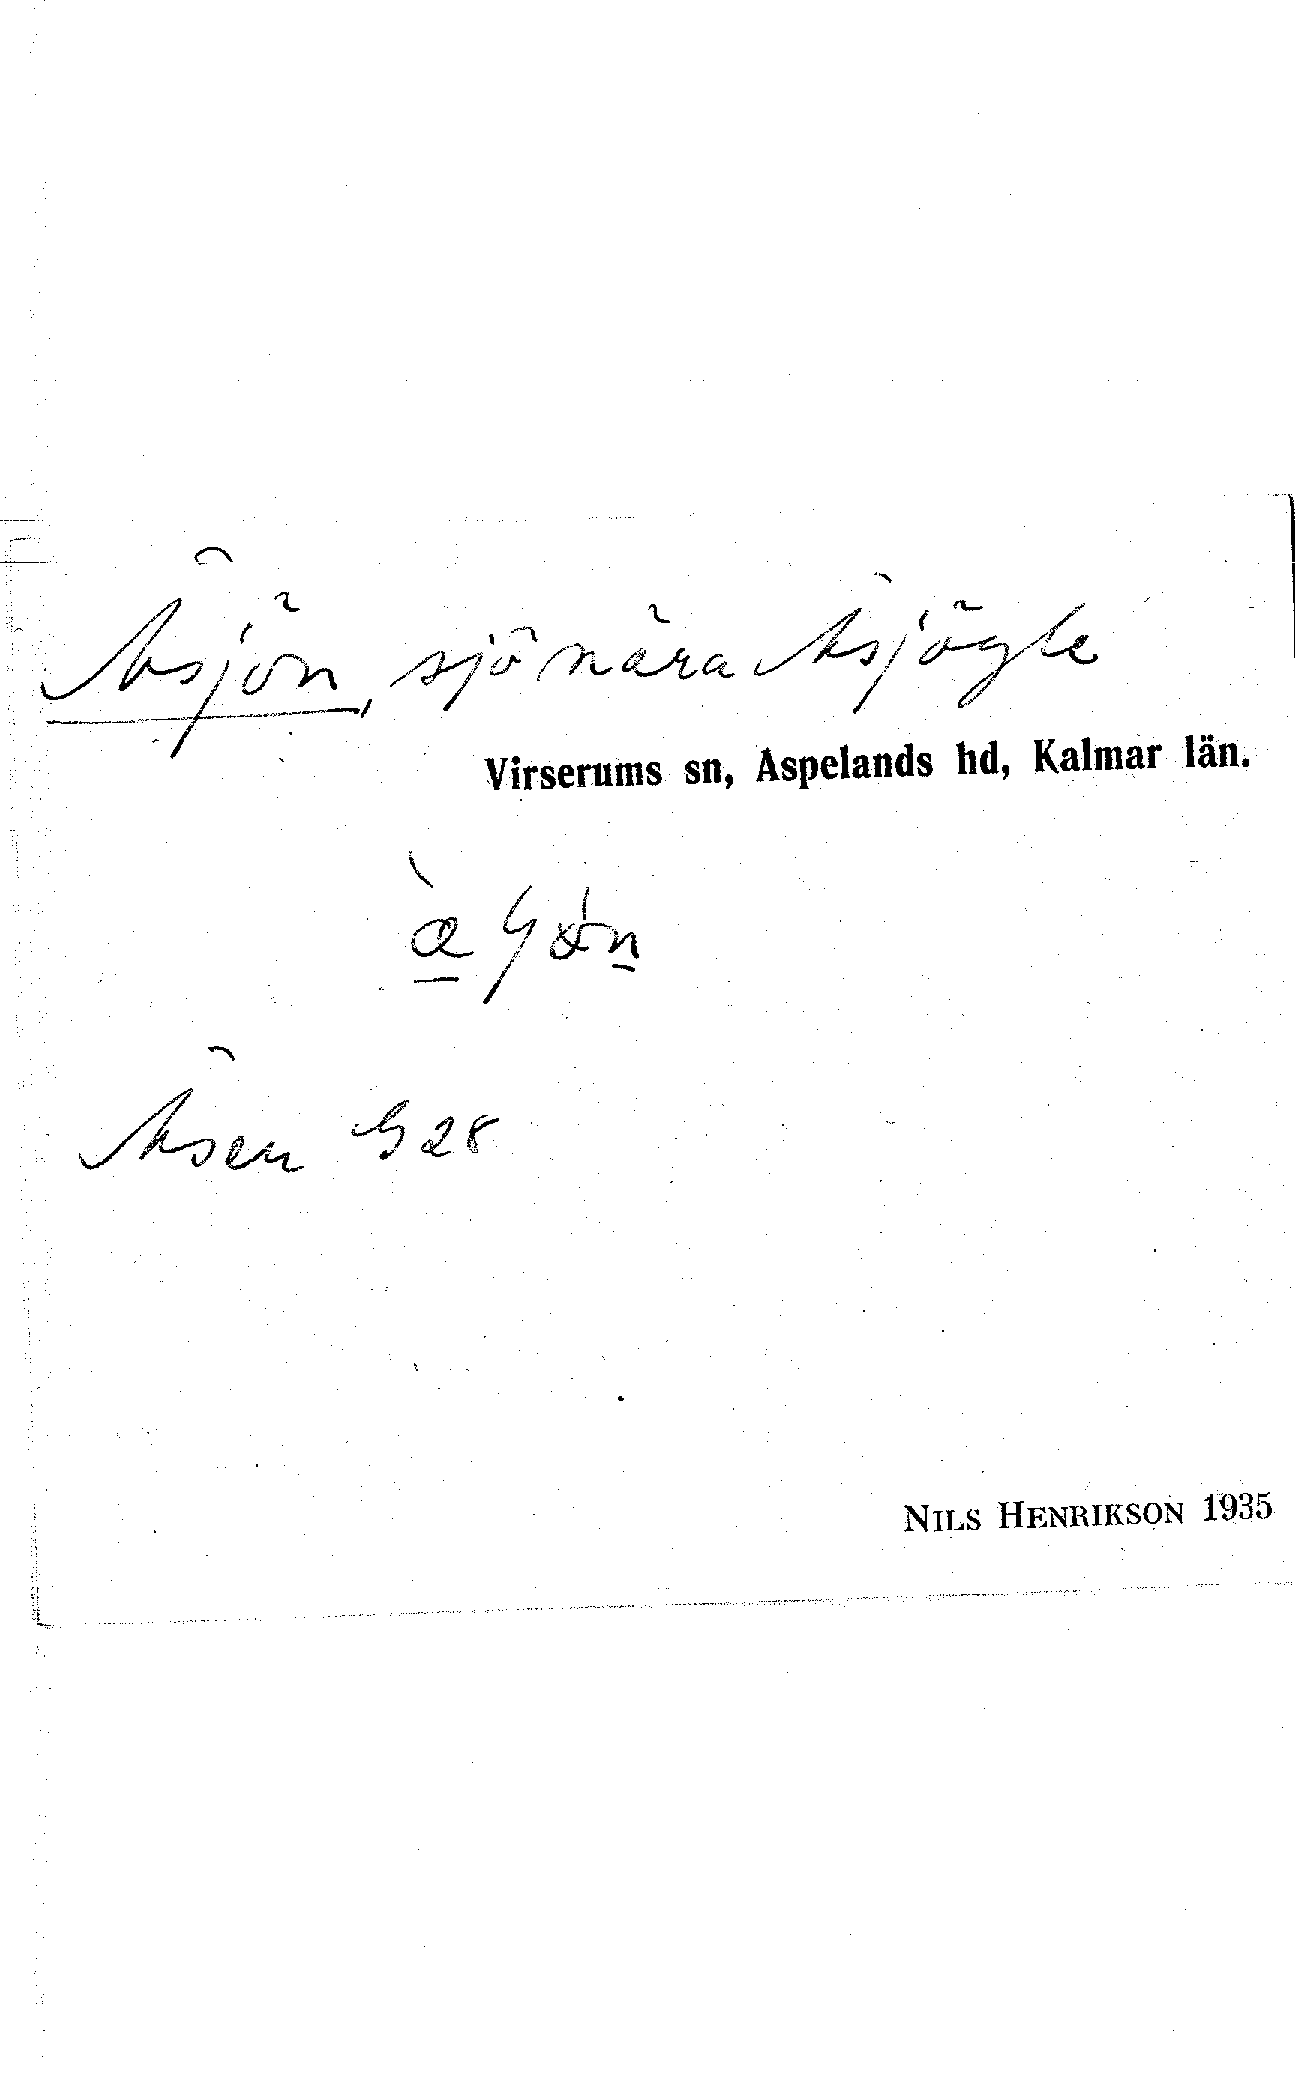 Åsjön, sjö nära Åsjögle
Virserums sn, Aspelands hd, Kalmar län.
Åsen G 28
NILS HENRIKSON 1935